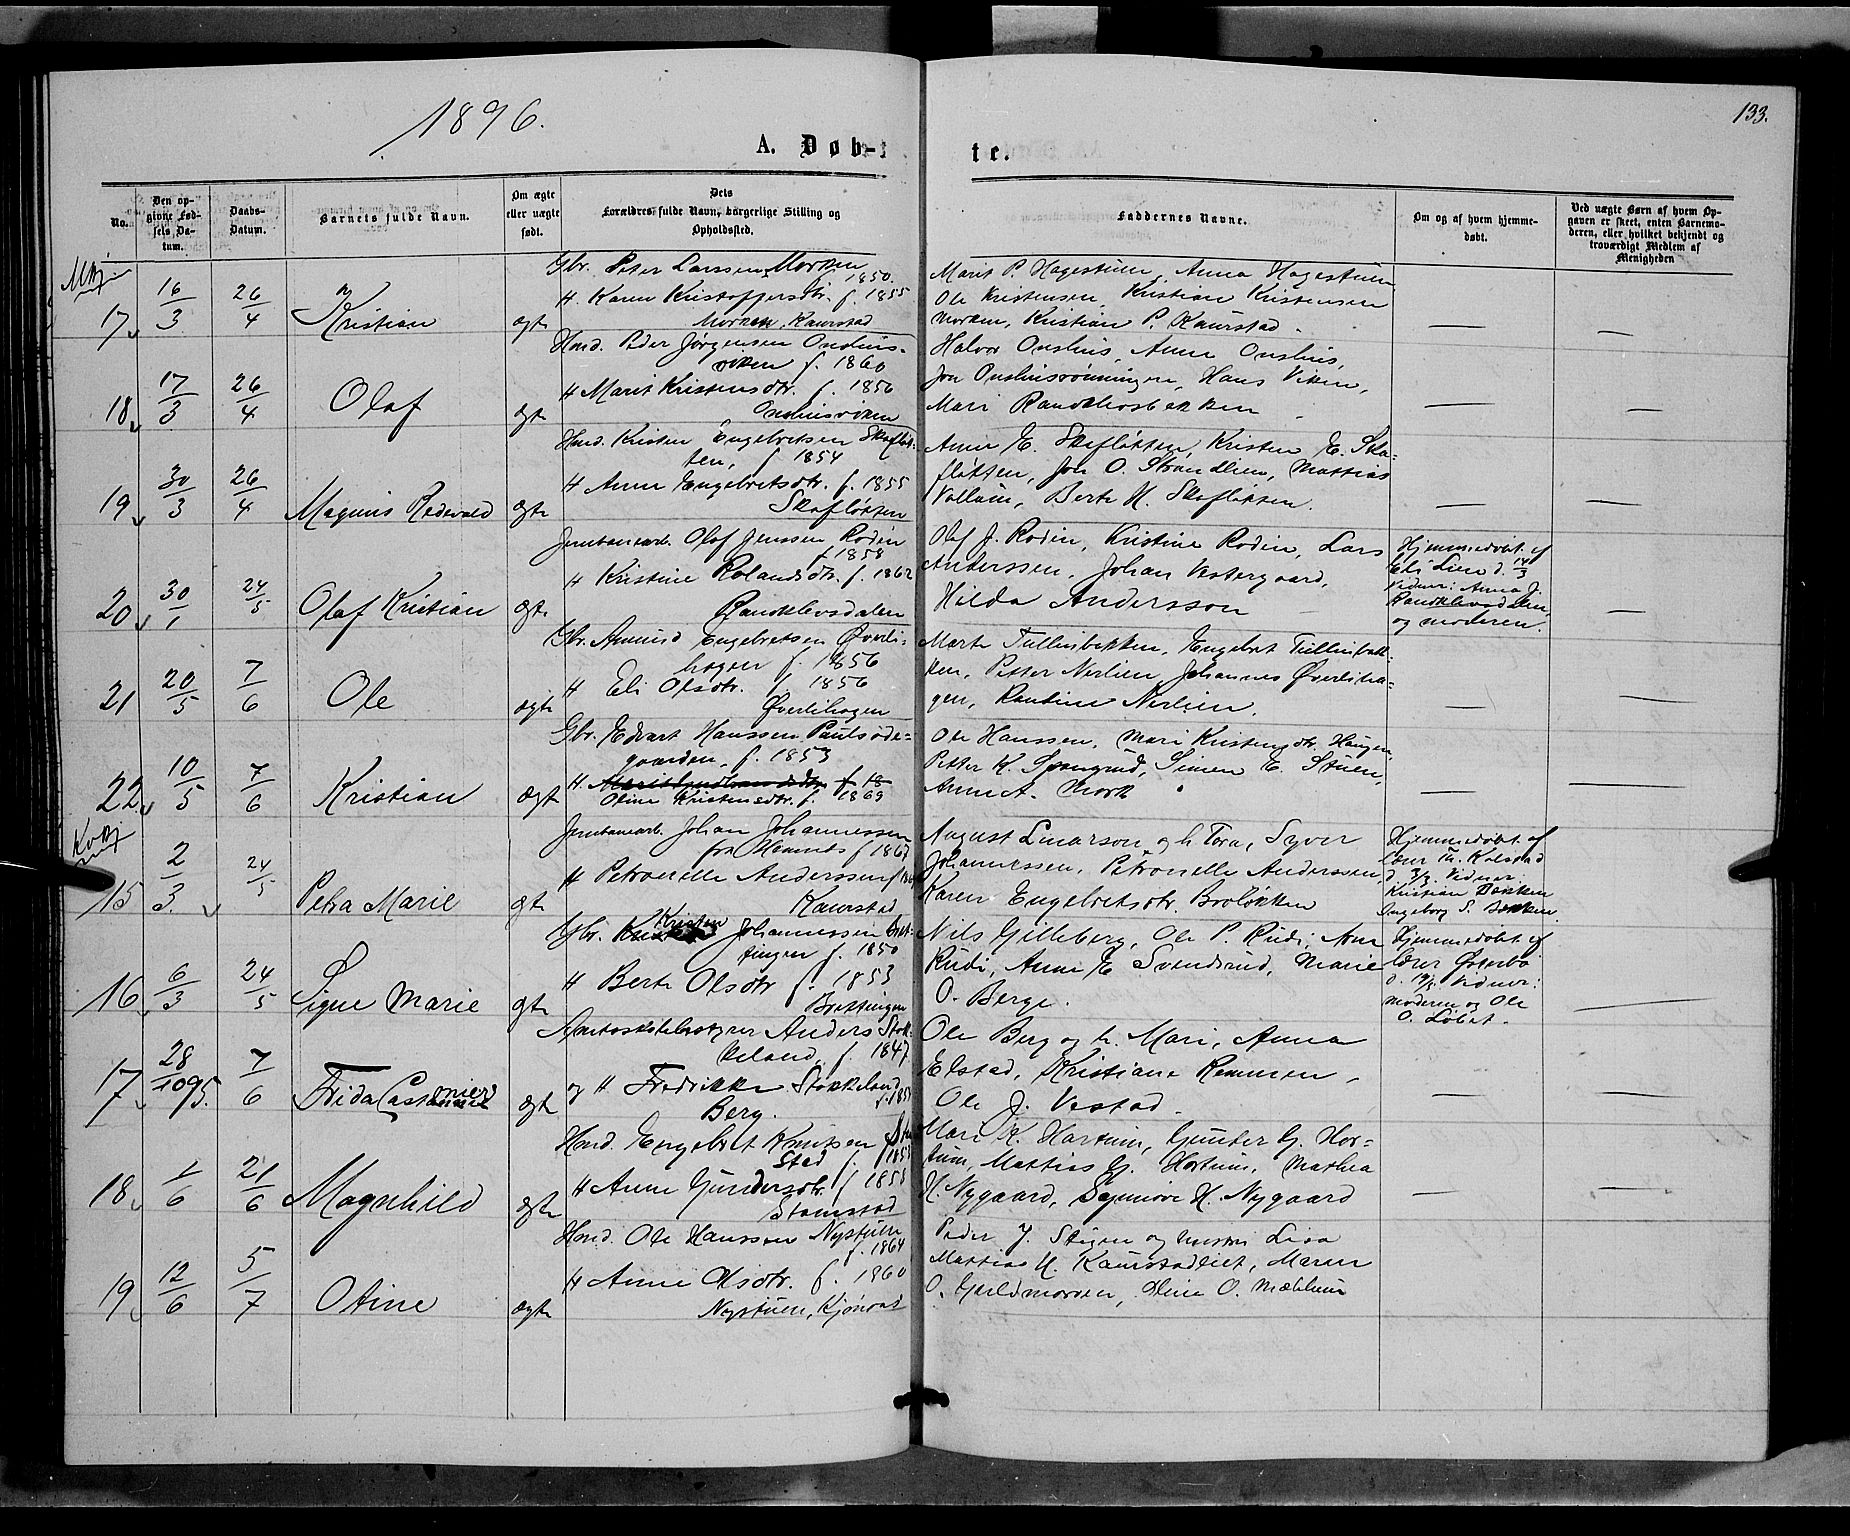 1896.
133.
A. Døb-
te.
No.
Den op-
givne Fød-
sels Da-
tum.
Daabs-
Datum.
Barnets fulde Navn.
Om ægte
eller uægte
født.
Dets
Forældres fulde Navn, borgerlige Stilling og
Opholdssted.
Faddernes Navne.
Om og af hvem hjemme-
døbt.
Ved uægte Børn af hvem Op-
gaven er skeet, enten Barnemo-
deren, eller hvilket bekjendt og
troværdigt Medlem af
Menigheden
17 16/3 26/4 Kristian ægte
Gbr. Peter Larssen Morken
f. 1850.
H. Karen Kristoffersdtr. f. 1855
Morken, Kaurstad
Marit P. Hagestuen, Anna Hagestuen
Ole Kristensen, Kristian Kristensen
Morken, Kristian P. Kaurstad.
18 17/3 26/4 Olaf ægte
Hmd. Peder Jørgensen Onshus-
viken f. 1860
H Marit Kristensdtr. f. 1856
Onshusviken
Halvor Onshus, Anne Onshus,
Jon Onshusrønningen, Hans Viken,
Mari Randklevsbakken
19 30/3 26/4 Magnus Redevald ægte
Hmd. Kristen Engebretsen Skafløt-
ten, f 1854
H Anne Engebretsdtr. f. 1855
Skafløtten
Anne E. Skafløtten, Kristen E. Ska-
fløtten, Jon O. Strandlien, Mattias
Vollum, Berte H. Skafløtten.
20 30/1 24/5 Olaf Kristian ægte
Jernbanearb. Olaf Jenssen Rodin
f 1858
H Kristine Rolandsdtr. f. 1862
Randklevsdalen
Olaf J. Rodin, Kristine Rodin, Lars
Anderssen, Johan Vestergaard,
Hilda Andersson
Hjemmedøbt af
Eli Lien d. 14/3
Vidner: Anna J.
Randklevsdalen
og moderen.
21 20/5 7/6 Ole ægte
Gbr. Amund Engebretsen Øverli-
hagen f. 1856
H Eli Olsdtr. f 1856
Øverlihagen
Marte Tullinbakken, Engebret Tullinbak-
ken, Petter Nerlien, Johannes Øverliha-
gen, Randine Nerlien.
22 10/5 7/6 Kristian ægte
Gbr. Edvart Hanssen Paulsøde-
gaarden, f. 1853
H. Otine Kristensdtr. f. 1869
Ole Hanssen, Mari Kristensdtr. Haugen,
Petter K. Spangrud, Simen E. Stuen,
Anne A. Mork
15 2/3. 24/5 Petra Marie ægte
Jernbanearb. Johan Johannessen
f 1867
H Petronelle Anderssen
Kaurstad
August Lnarson og h. Tora, Syver
Johannessen, Petronelle Anderssen,
Karen Engebretsdtr. Broløkken
Hjemmedøbt af
Lærer Th. Kolstad
d. 3/3. Vidner:
Kristian Bakken
Ingeborg S. Bakken.
16 6/3 24/5 Signe Marie ægte
Gbr. Kristen Johannessen Bret-
tingen f. 1850
H Berte Olsdtr f. 1853
Brettingen
Nils Gilleberg, Ole P. Rudi, Anne
Rudi, Anne E Svendsrud, Marie
O. Berge.
Hjemmedøbt af
Lærer Østerbø
Vidner:
Moderen og Ole
O. Løbet.
17 28/10 95. 7/6 Frida Castanier ægte
Amtsskolebestyrer Anders Stok-
keland, f. 1847
og H Fredrikke Stokkeland
Berg.
Ole Berg og h. Mari, Anna
Elstad, Kristiane Remmen,
Ole J. Vestad.
18 1/6 21/6 Magnhild ægte
Hmd. Engebret Knutsen Stam-
stad
H Anne Gundersdtr. f 1858
Stamstad
Mari K. Hartum, Gunder G. Hor-
tum, Mattias G. Hortum, Mathea
H. Nygaard, Synnøve H. Nygaard
19 12/6 5/7 Otine ægte
Hmd. Ole Hanssen Nystuen
f. 1864
H Anne Olsdtr. f. 1860
Nystuen, Kjønaas
Peder J. Stigen og hustru Lisa
Mattias H. Kaurstadleet, Maren
O. Mæhlum